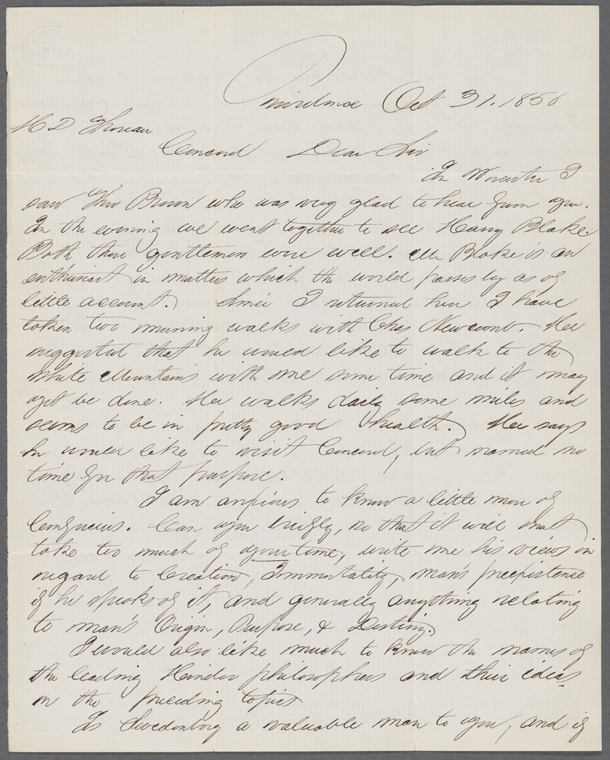 Providence Oct 31. 1856
H D Thoreau
Concord Dear Sir
In Worcester I
saw Theo Brown who was very glad to hear from you.
In the evening we went together to see Harry Blake
Both these gentlemen were well. Mr Blake is an
enthusiast in matters which the world passes by as of
little account. Since I returned here I have
taken two morning walks with Chas Newcomb. He
suggested that he would like to walk to the
White Mountains with me some time and it may
yet be done. He walks daily some miles and
seems to be in pretty good health. He says
he would like to visit Concord, but named no
time for that purpose.
I am anxious to know a little more of
Confucius. Can you briefly, so that it will not
take too much of your time, write me his views in
regard to Creation, Immortality, man's preexistence
if he speaks of it, and generally anything relating
to man's Origin, Purpose, & Destiny.
I would also like much to know the names of
the leading Hindoo philosophers and their ideas
on the preceding topics
Is Swedenborg a valuable man to you, and if